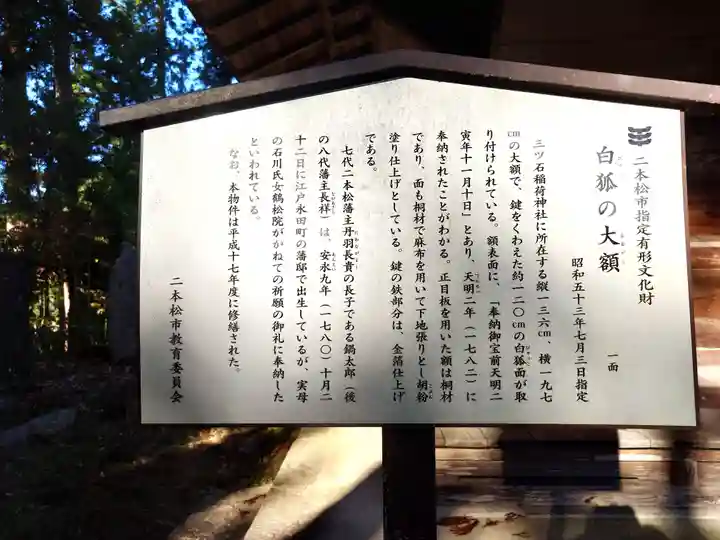 二本松市指定有形文化財
白狐の大額
一面
昭和五十三年七月三日指定
三ツ石稲荷神社に所在する縦一三六cm、横一九七
cmの大額で、鍵をくわえた約一二〇cmの白狐面が取
り付けられている。額表面に、「奉納御宝前天明二
寅年十一月十日」とあり、天明二年（一七八二）に
奉納されたことがわかる。正目板を用いた額は桐材
であり、面も桐材で麻布を用いて下地張りとし胡粉
塗り仕上げとしている。鍵の鉄部分は、金箔仕上げ
である。
七代二本松藩主丹羽長貴の長子である鍋太郎（後
の八代藩主長祥）は、安永九年（一七八〇）十月二
十二日に江戸永田町の藩邸で出生しているが、実母
の石川氏女鶴松院がかねての祈願の御礼に奉納した
といわれている。
なお、本物件は平成十七年度に修繕された。
二本松市教育委員会